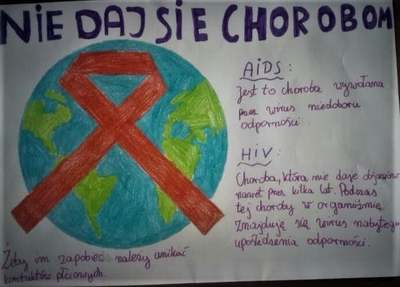 NIE DAJ SIE CHOROBOM
AIDS:
Jest to choroba wywołana
przez wirus niedoboru
odporności.
HIV:
Choroba, która nie daje objawów
nawet przez kilka lat. Podczas
tej choroby w organizmie
znajduje się wirus nabytego
upośledzenia odporności.
Żeby im zapobiec należy unikać
kontaktów płciowych.